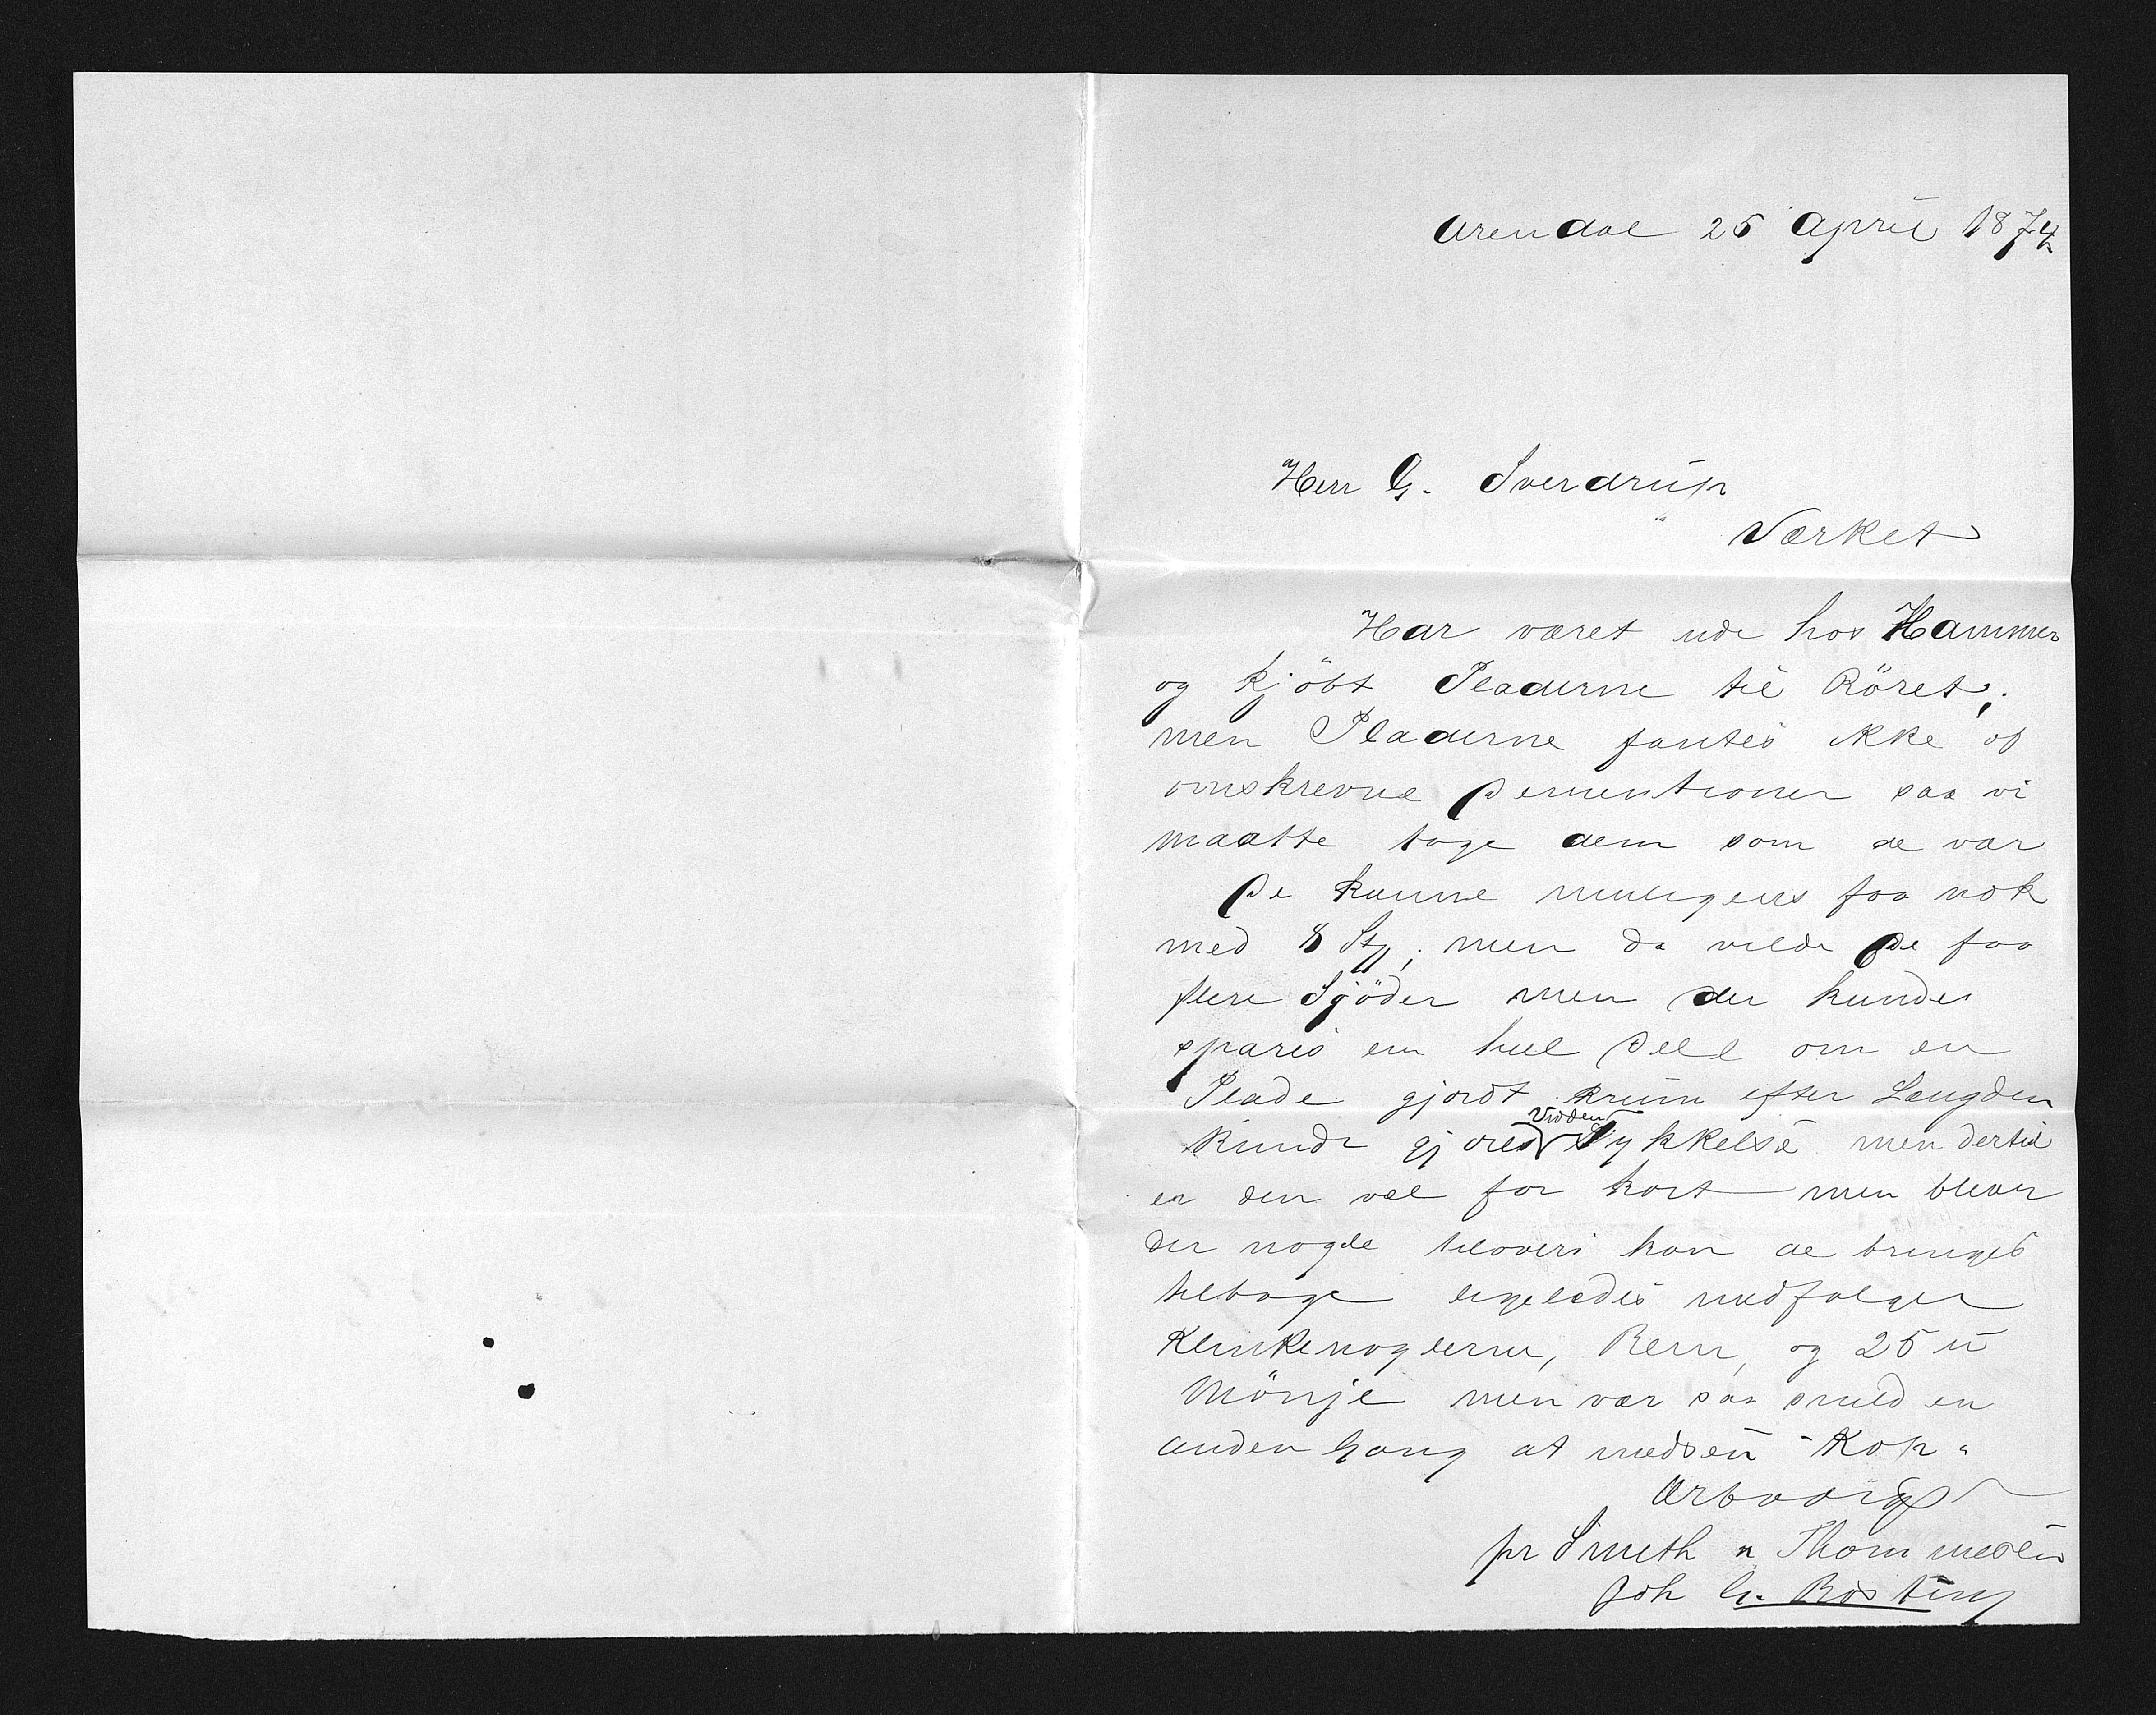 Arendal 25 April 1874
Herr G. Sverdrup
Værket
Har været ude hos Hammer
og kjöbt Pladerne til Röret;
men Pladerne fantes ikke af
omskrevne Dementioner saa vi
maatte tage dem som de var
De kunne muligens faa nok
med 8 Stg; men da vilde De faa
flere Sjöder men der kunde
spares en heel Deel om en
Plade gjordt krum efter Længden
kunde gjøres Vidden Tykkelse men dertil
er den vel for kort men bliver
der nogle tilovers kan de bringes
tilbage ligeledes medfølger
Klinkenaglerne, Rem, og 25 u
Mönje men vær saa snild en
anden Gang at medsen Kop"
Ærbødigst
pr Smith n Thommesen
Joh G.